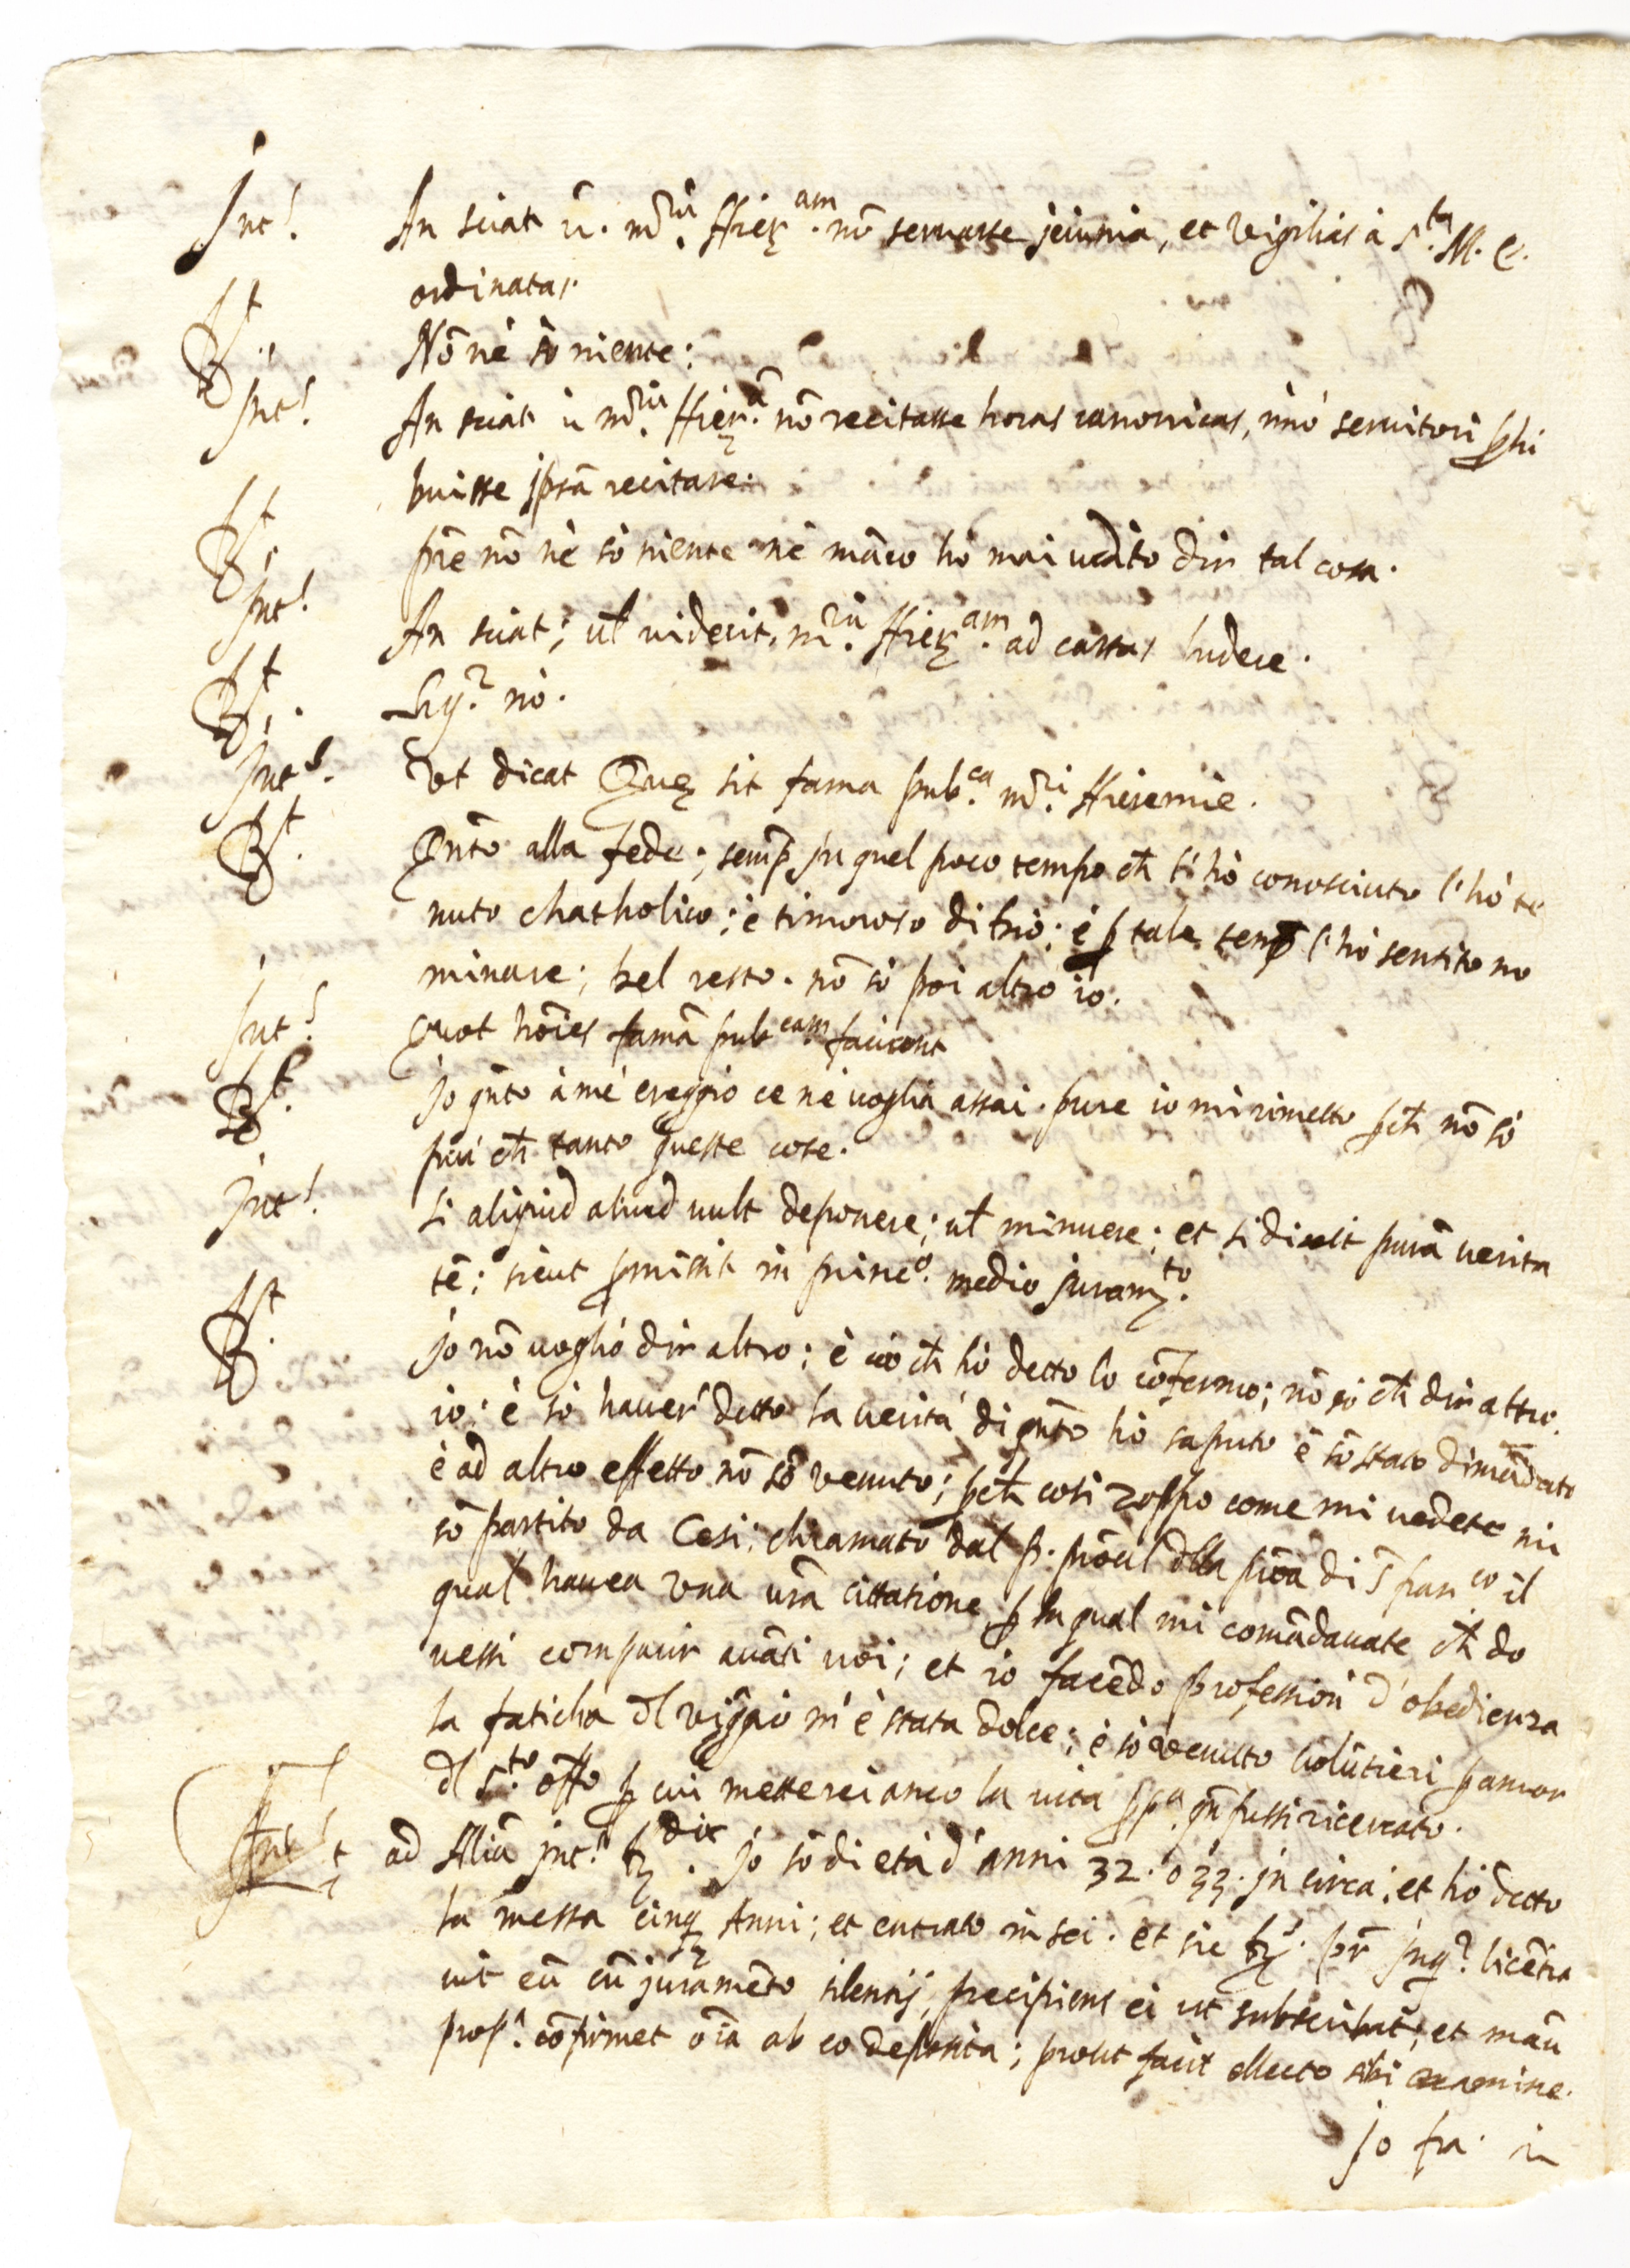 Int.s An sciat ū. mr̄um Hierᵃᵐ. nō seruasse jeiunia, et vigilias à S.ta M. E.
ordinatas.
Rt. Nō nè sò niente:
Int.s An sciat ū mr̄um Hierā. nō recitasse horas canonicas, imò seruitori phi
buisse ipsā recitare.
Rt. pr̄e nō nè sò niente nè māco hò mai udito dir tal cosa.
Int.s An sciat; ul̄ viderit, mr̄um Hierᵃᵐ. ad cartas ludere.
Rt. Sig.r nò.
Int.s Vt dicat Quę sit fama pub.ca mr̄i Hieremie.
Rt. Qn̄to alla fede; semp̄ in quel poco tempo ch̄ l'hò conosciuto l'hò te
nuto chatholico; è timoroso di Dio; è p tale semp̄ l'hò sentito no
minare; nel resto. nō sò poi altro io.
Int.s Quot hōies famā pubᶜᵃᵐ. faciant
Rt. Jo qn̄to à mè creggio ce nè voglia assai. pure io mi rimetto pch̄ nō sò
più ch̄ tanto queste cose.
Int.s Si aliquid aliud uult deponere; ul̄ minuere; et si dixit purā uerita
tē; sicut promisit in princ.o medio juram.to
Rt. Jo nō uoglio dir altro; è ciò ch̄ hò detto lo cōfermo; nō sò ch̄ dir altro
io; è sò hauer detto la verità di qn̄to hò saputo è sō stato dimādato
è ad altro effetto nō sō venuto; pch̄ cosi zoppo come mi vedete mi
sō partito da Cesi; chiamato dal p. prōuil dlla pīoa di S fran.co il
qual hauea vna vrā cittatione p la qual mi comādauate ch̄ do
uessi comparir auāti uoi; et io facēdo profession d'obedienza
la faticha dl viggio m'è stata dolce; è sò venuto volūtieri p amor
dl S.to offo p cui metterei anco la vita ppa. qn̄ fussi ricercato.
Int.s ad Aliā int.s Rt dix. Jo sō di età d'anni 32. o 33. in circa; et hò detto
la messa cinq Anni; et entrato in sei. et sic Rx. pr̄ inq.r licētia
uit eū cū juramēto silentij, precipiens ei ut subscribat; et manū
prop.a cōfirmet oīa ab eo deposita; prout facit ellecto sibi examine.
Jo fra.